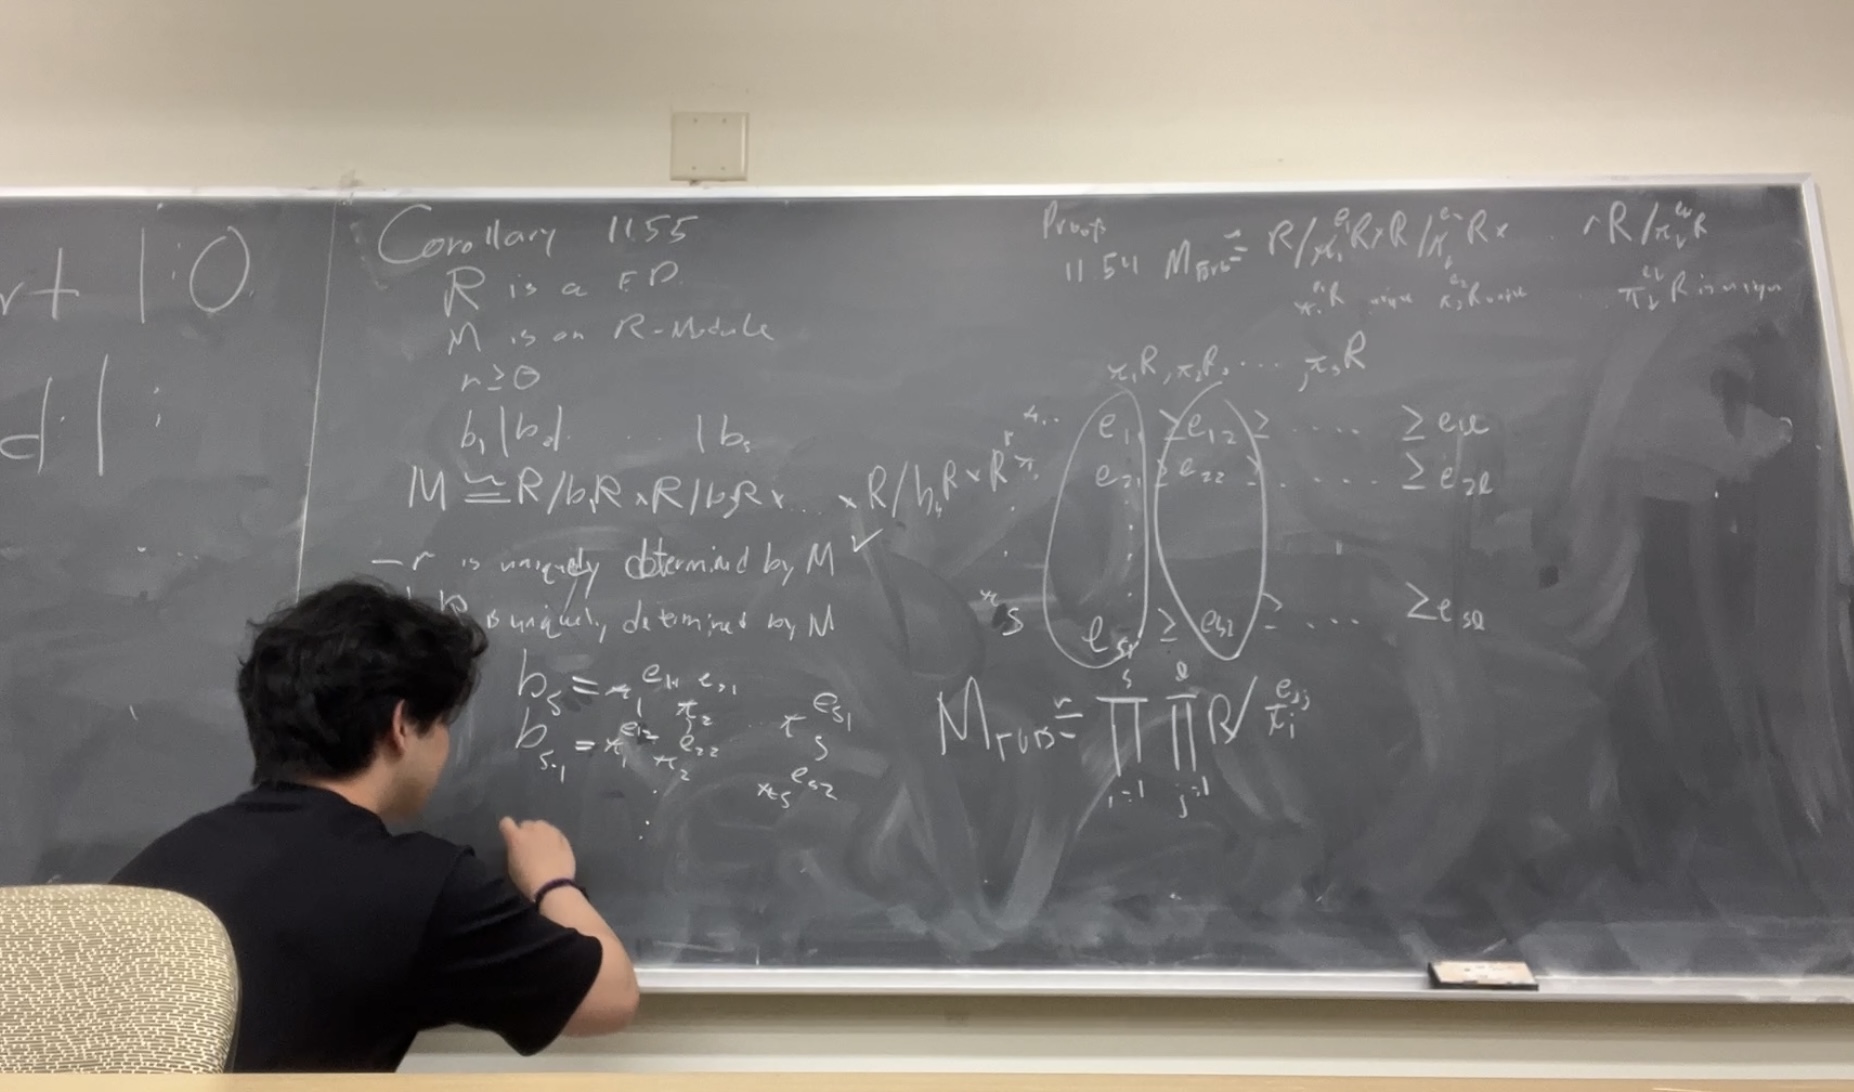 rt 1:0
d | :
Corollary 11.55
R is a ED.
M is an R-Module
r ≥ 0
b₁|b₂| ... |bₛ
M ≅ R/b₁R × R/b₂R × ... × R/bₛR × Rʳ
- r is uniquely determined by M ✓
is uniquely determined by M
bₛ = π₁^e₁₁ π₂^e₂₁ ... πₛ^eₛ₁
bₛ₋₁ = π₁^e₁₂ π₂^e₂₂ πₛ^eₛ₂
⋮
Proof
11.54 M ≅ R/π₁^e₁R × R/π₂^e₂R × ... × R/πᵥ^eᵥR
π₁^e₁R unique π₂^e₂R unique ... πᵥ^eᵥR is unique
π₁R, π₂R, ..., πₛR
e₁₁ ≥ e₁₂ ≥ .... ≥ e₁ℓ
e₂₁ ≥ e₂₂ ≥ .... ≥ e₂ℓ
πₛ eₛ₁ ≥ eₛ₂ ≥ ... ≥ eₛℓ
M ≅ ∏ᵢ₌₁ˢ ∏ⱼ₌₁ℓ R/πᵢ^eᵢⱼ